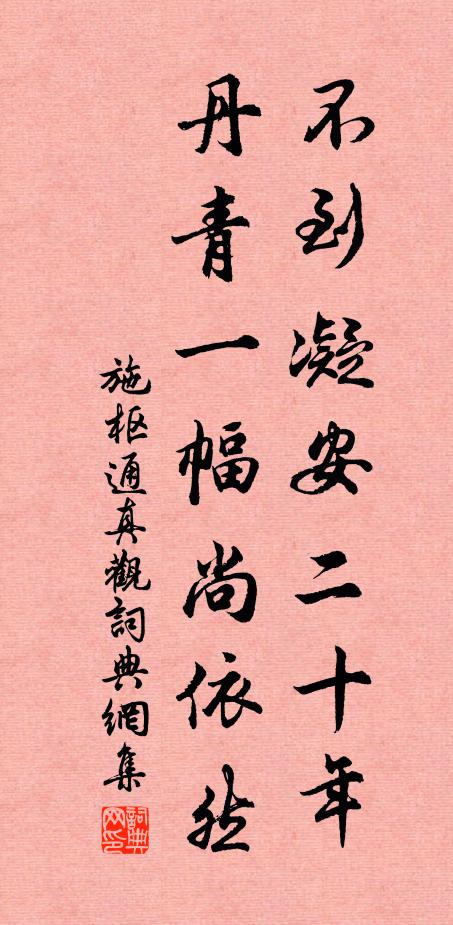 不到凝安二十年
丹青一幅尚依然
施枢通真觀詞典網集
詞典网印